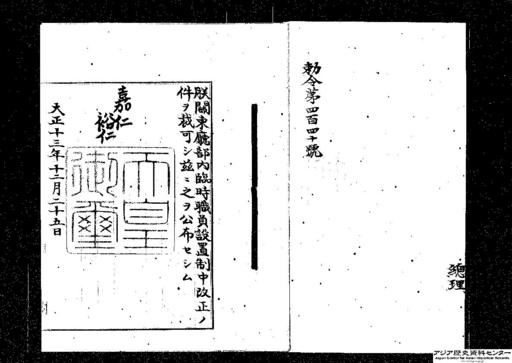 勅令第四百四十號
總理
朕關東廳部内臨時職員設置制中改正ノ
件ヲ裁可シ玆ニ之ヲ公布セシム
嘉仁
裕仁
天皇
御璽
大正十三年十二月二十五日
アジア歴史資料センター
Japan Center for Asian Historical Records